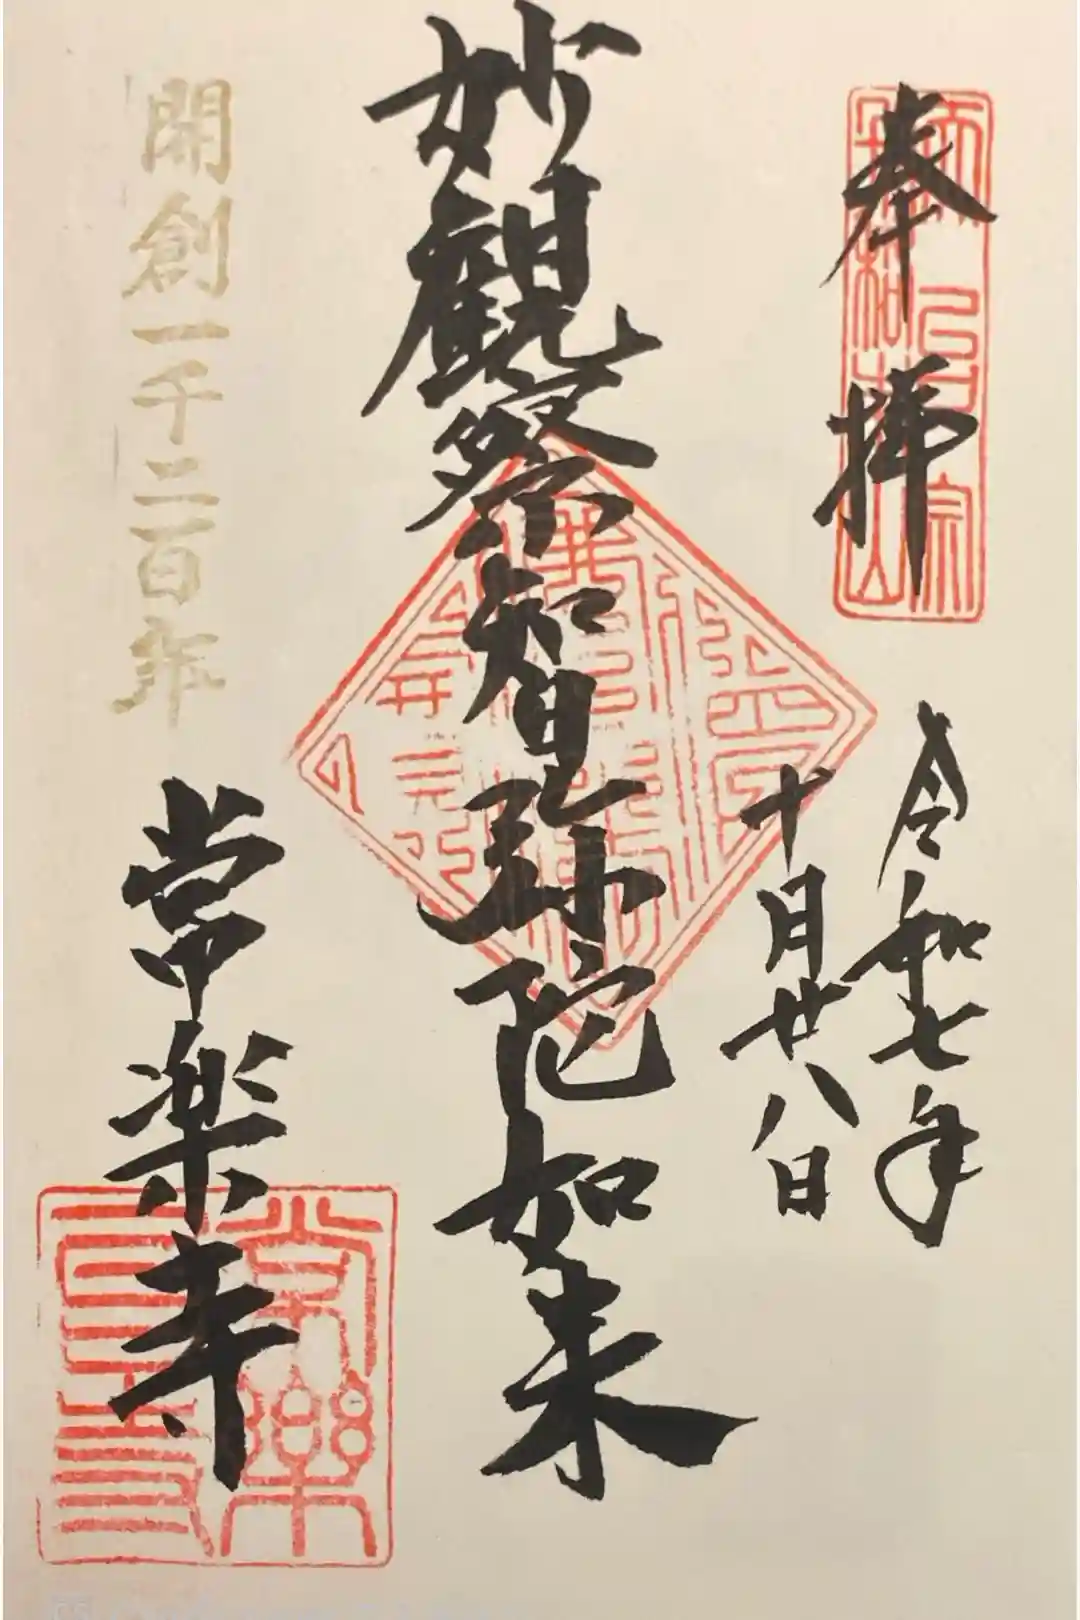 奉拝
令和七年
十月廿八日
妙觀察智弥陀如来
開創一千二百年
常楽寺